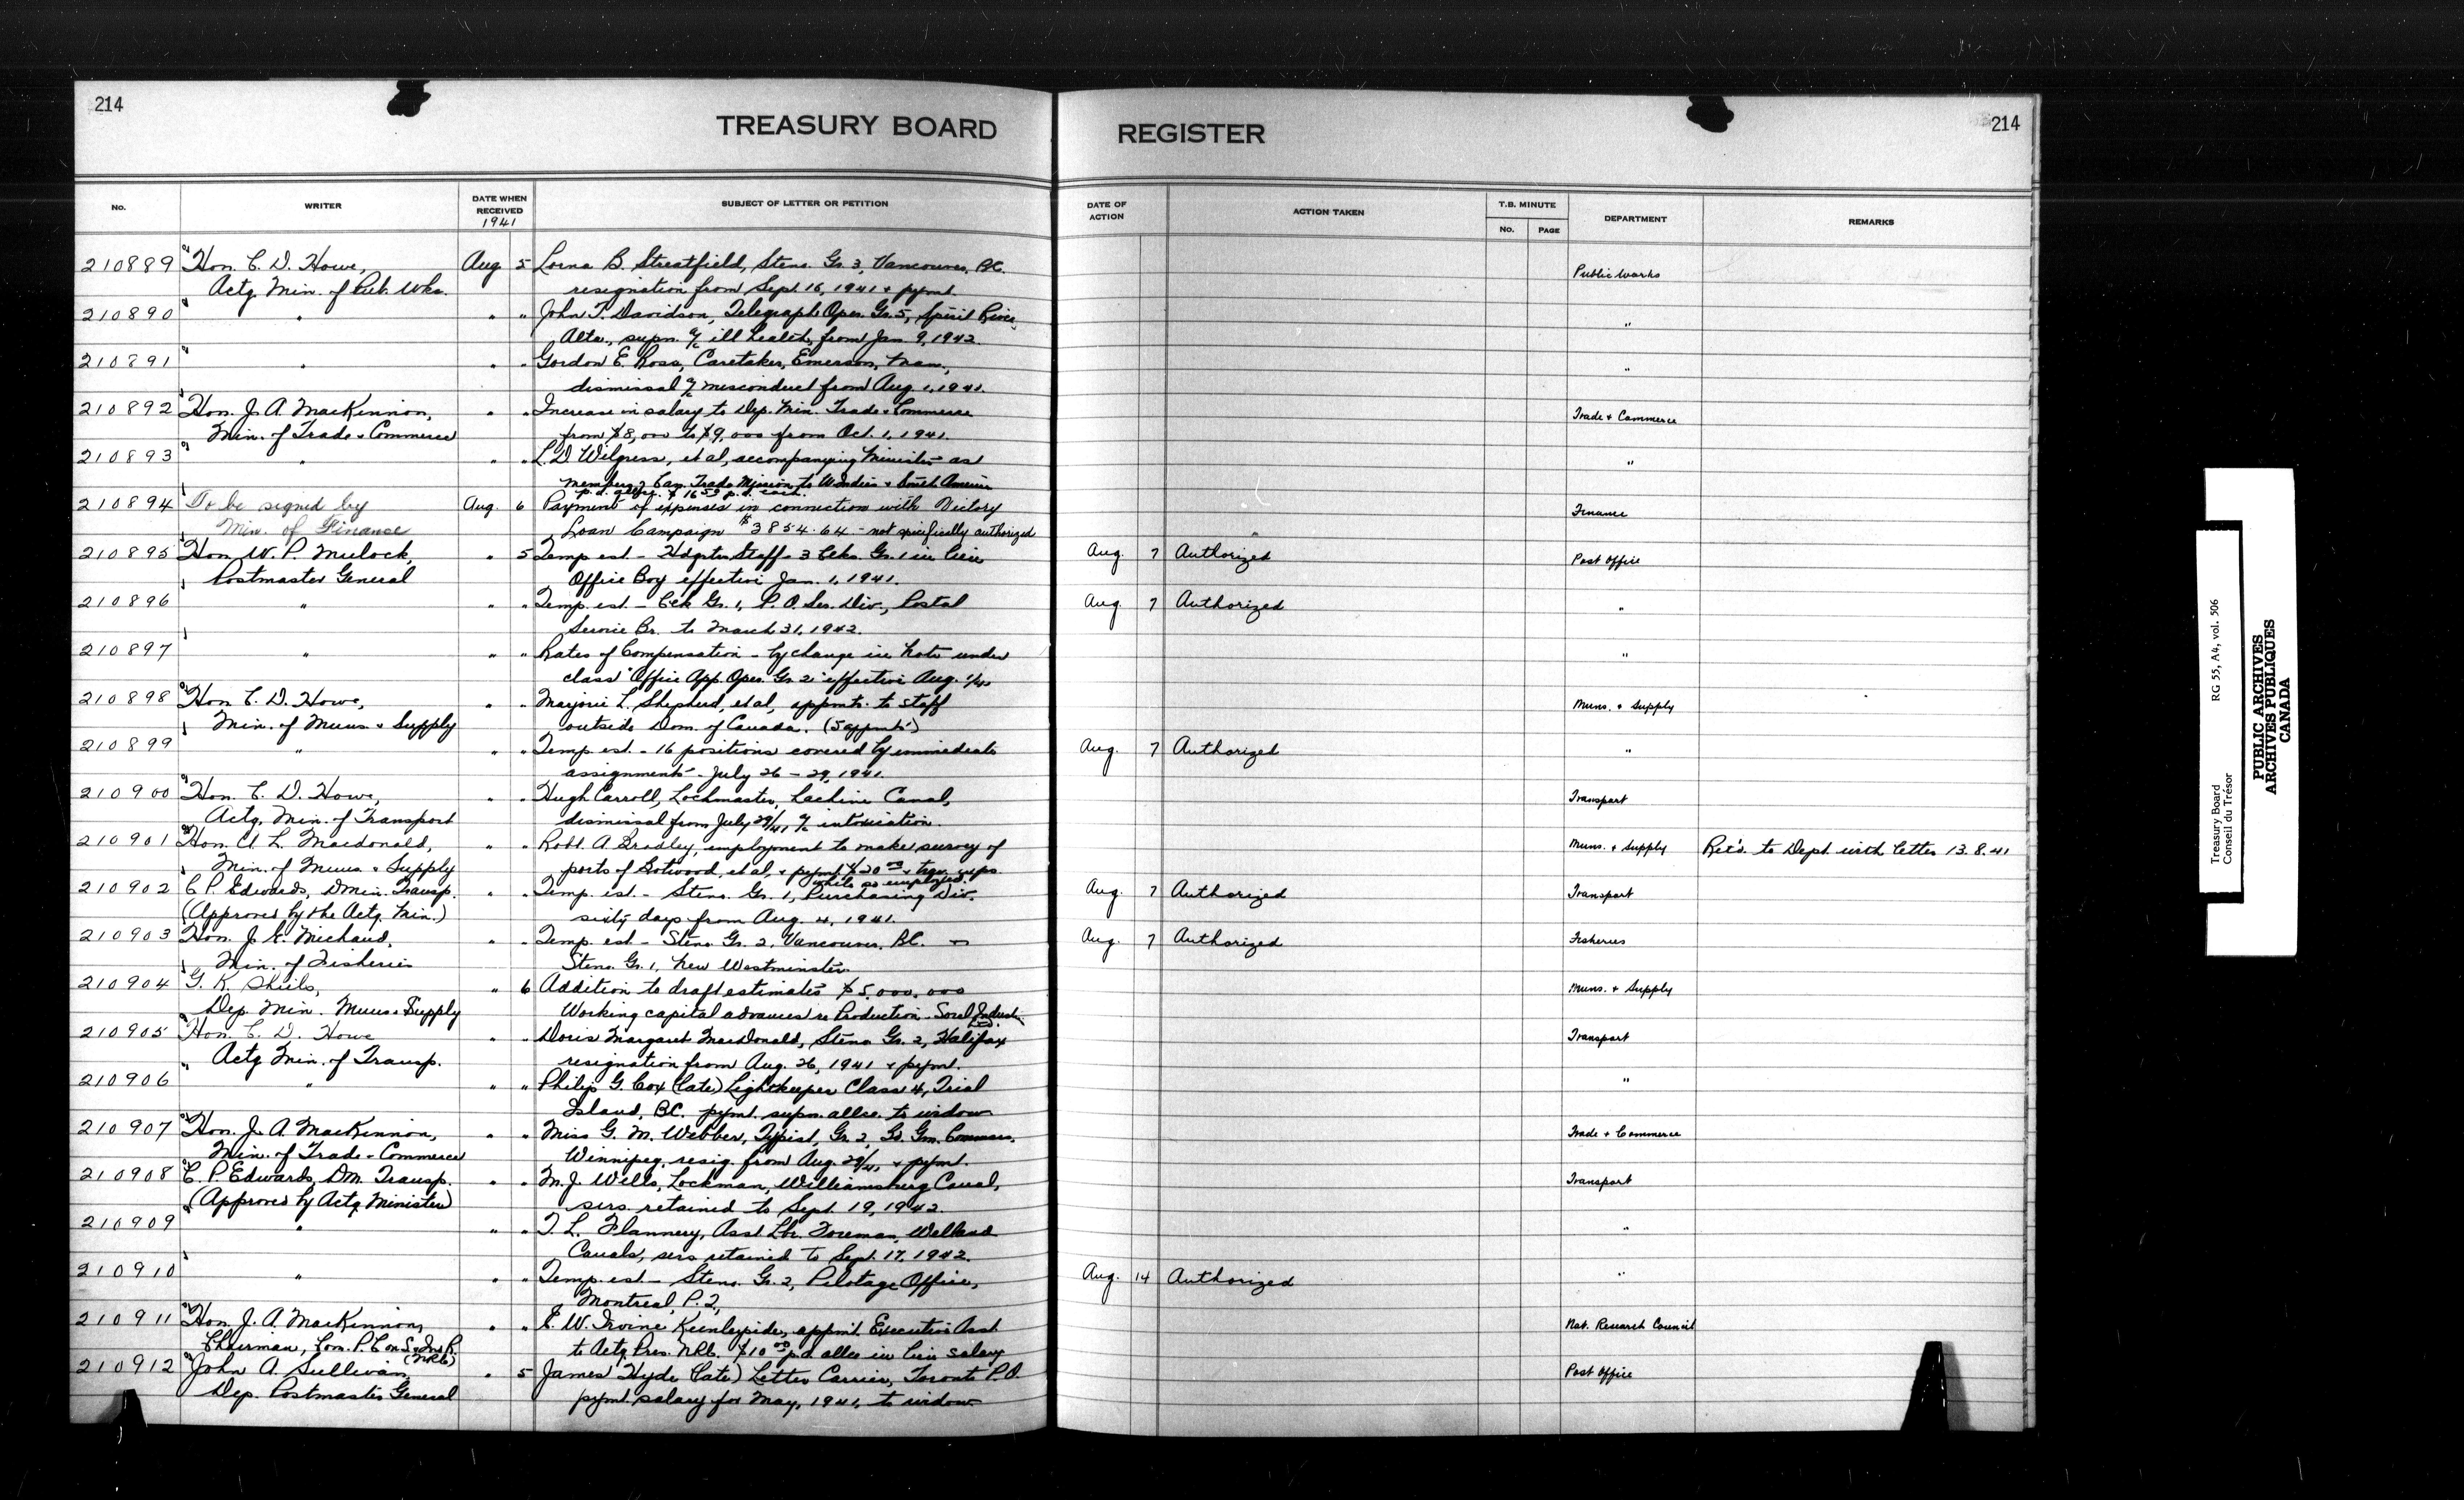 214
TREASURY BOARD
REGISTER
214
No.
WRITER
DATE WHEN RECEIVED
1941
SUBJECT OF LETTER OR PETITION
DATE OF ACTION
ACTION TAKEN
T.B. MINUTE
No.
PAGE
DEPARTMENT
REMARKS
210889 Hon. C. D. Howe, Aug. 5 Lorna B. Streatfield, Steno. Gr. 3, Vancouver, B.C. Public Works
Actg. Min. of Pub. Wks. resignation from Sept. 16, 1941 + pymt.
210890 " " " John T. Davidson, Telegraph Oper. Gr. 5, Spirit River, "
Alta., supn. a/c ill health, from Jan 9, 1942.
210891 " " " Gordon E. Ross, Caretaker, Emerson, Man., "
dismissal a/c misconduct from Aug. 1, 1941.
210892 Hon. J. A. MacKinnon, " " Increase in salary to Dep. Min. Trade + Commerce Trade + Commerce
Min. of Trade + Commerce from $8,000 to $9,000 from Oct. 1, 1941.
210893 " " " L. D. Wilgress, et al, accompanying Minister as "
members of Can. Trade Mission to W. Indies + South America
p.d. each.
210894 To be signed by Aug. 6 Payment of expenses in connection with Victory Finance
Min. of Finance Loan Campaign $3854.64 - not specifically authorized
210895 Hon. W. P. Mulock, " 5 Temp. est. - Hdqtrs Staff - 3 Clks. Gr. 1 in lieu Aug. 7 Authorized Post Office
Postmaster General Office Boy effective Jan. 1, 1941.
210896 " " " Temp. est. - Clk Gr. 1, P. O. Ser. Div., Postal Aug. 7 Authorized "
Service Br. to March 31, 1942.
210897 " " " Rates of Compensation - by change in Note under "
class "Office App. Oper. Gr. 2" effective Aug. 1/41
210898 Hon. C. D. Howe, " " Marjorie L. Shepherd, et al, appmts. to staff Muns. + Supply
Min. of Muns + Supply outside Dom. of Canada. (5 appmts)
210899 " " " Temp. est. - 16 positions covered by immediate Aug. 7 Authorized "
assignments - July 26 - 29, 1941.
210900 Hon. C. D. Howe, " " Hugh Carroll, Lockmaster, Lachine Canal, Transport
Actg. Min. of Transport dismissal from July 29/41 a/c intoxication.
210901 Hon. A. L. Macdonald, " " Robt. A. Bradley, employment to make survey of Muns. + Supply Ret'd. to Dept. with letter 13.8.41
Min. of Muns. + Supply ports of Botwood, et al, + pymt. $20.00 + trav. exps.
while so employed.
210902 C. P. Edwards, D Min. Transp. " " Temp. est. - Steno. Gr. 1, Purchasing Div. Aug. 7 Authorized Transport
(Approved by the Actg. Min.) sixty days from Aug. 4, 1941.
210903 Hon. J. E. Michaud, " " Temp. est - Steno Gr. 2, Vancouver, B.C. Aug. 7 Authorized Fisheries
Min. of Fisheries Steno. Gr. 1, New Westminster.
210904 G. K. Shiels, " 6 Addition to draft estimates $5,000,000 Muns. + Supply
Dep. Min. Muns + Supply Working capital advances re Production - Sorel Industries
Ltd.
210905 Hon. C. D. Howe " " Doris Margaret MacDonald, Steno Gr. 2, Halifax Transport
Actg Min. of Transp. resignation from Aug. 26, 1941 + pymt.
210906 " " " Philip G. Cox (late) Lightkeeper Class 4, Trial "
Island, B.C. pymt. supn. allce. to widow
210907 Hon. J. A. MacKinnon, " " Miss G. M. Webber, Typist, Gr. 2, Bd. Grn. Commrs. Trade + Commerce
Min. of Trade + Commerce Winnipeg, resig. from Aug. 29/41 + pymt.
210908 C. P. Edwards, D.M. Transp. " " M. J. Wells, Lockman, Williamsburg Canal, Transport
(Approved by Actg Minister) sers. retained to Sept. 19, 1942.
210909 " " " T. L. Flannery, Asst. Lbr. Foreman, Welland "
Canals, sers retained to Sept. 17, 1942.
210910 " " " Temp. est - Steno. Gr. 2, Pilotage Office, Aug. 14 Authorized "
Montreal, P.Q.
210911 Hon. J. A. MacKinnon, " " E. W. Irvine Keenleyside, appmt. Executive Asst. Nat. Research Council
Chairman, Com. P. C. on S. + Ind. R. to Actg. Pres. NRC. $10.00 p.d. allce in lieu salary
(NRC)
210912 John A. Sullivan " 5 James Hyde (late) Letter Carrier, Toronto P.O. Post Office
Dep. Postmaster General pymt. salary for May, 1941, to widow
Treasury Board RG 55, A4, vol. 506
Conseil du Trésor
PUBLIC ARCHIVES
ARCHIVES PUBLIQUES
CANADA